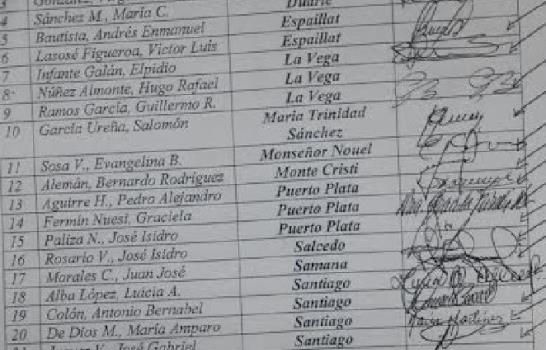 3
4 Sánchez M., María C. Duarte
5 Bautista, Andrés Enmanuel Espaillat
6 Lasosé Figueroa, Victor Luis Espaillat
7 Infante Galán, Elpidio La Vega
8 Núñez Almonte, Hugo Rafael La Vega
9 Ramos García, Guillermo R. La Vega
10 García Ureña, Salomón Maria Trinidad
Sánchez
11 Sosa V., Evangelina B. Monseñor Nouel
12 Alemán, Bernardo Rodríguez Monte Cristi
13 Aguirre H., Pedro Alejandro Puerto Plata
14 Fermín Nuesi, Graciela Puerto Plata
15 Paliza N., José Isidro Puerto Plata
16 Rosario V., José Isidro Salcedo
17 Morales C., Juan José Samana
18 Alba López, Luicia A. Santiago
19 Colón, Antonio Bernabel Santiago
20 De Dios M., María Amparo Santiago
José Gabriel Santiago